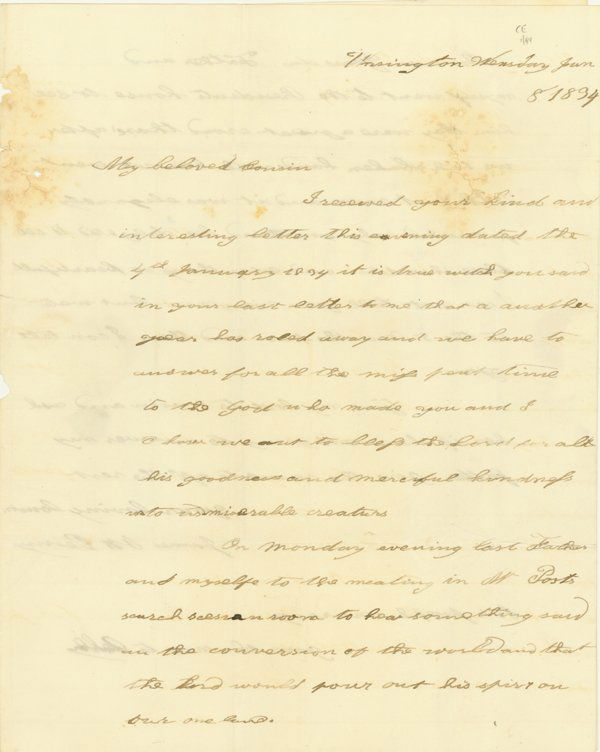 CE
Wensday Jan
8 1834
My beloved Cousin
I received your kind and
interesting letter this evening dated the
4th January 1834 it is true with you said
in your last letter to me that a another
year has roled away and we have to
answer for all the miss pent time
to the God who made you and I
O how we aut to bless the Lord for all
his goodness and merciful kindness
unto us miserable creaturs
On Monday evening last Father
and myselfe to the meating in Mr Posts
seurch to hear something said
in the conversion of the world and that
the Lord would pour out his spirt on
our one land.